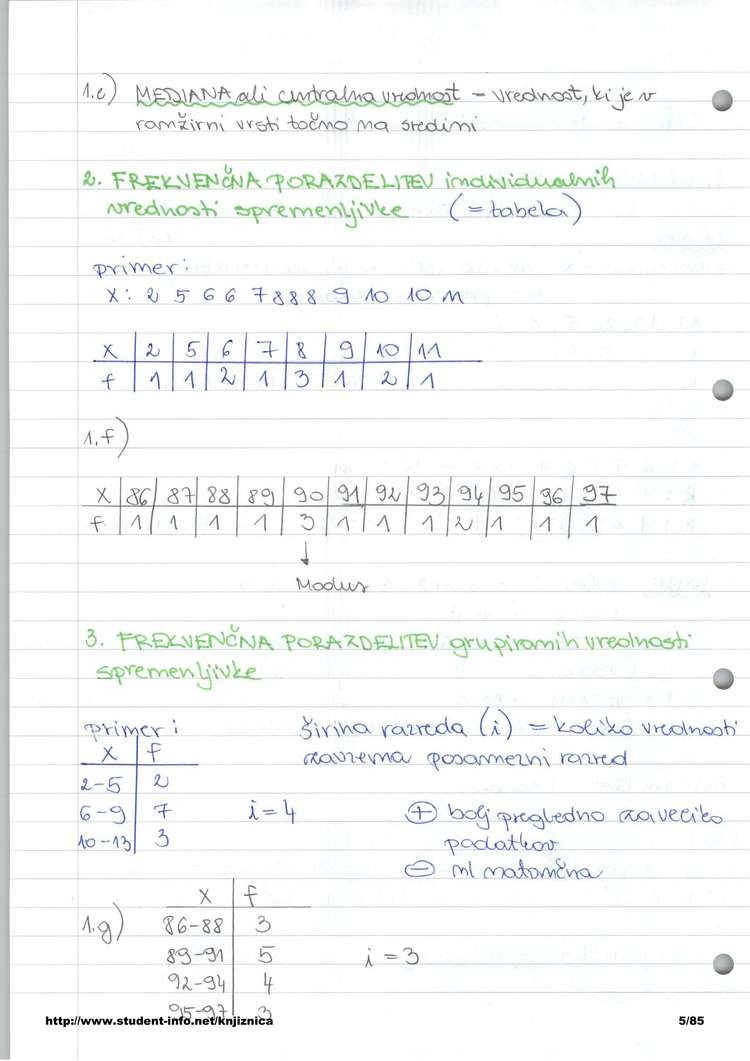 1.e) MEDIANA ali centralna vrednost – vrednost, ki je v
ranžirni vrsti točno na sredini
2. FREKVENČNA PORAZDELITEV individualnih
vrednosti spremenljivke (= tabela)
primer:
X: 2 5 6 6 7 8 8 8 9 10 10 11
X 2 5 6 7 8 9 10 11
f 1 1 2 1 3 1 2 1
1.f)
X 86 87 88 89 90 91 92 93 94 95 96 97
f 1 1 1 1 3 1 1 1 2 1 1 1
↓
Modus
3. FREKVENČNA PORAZDELITEV grupiranih vrednosti
spremenljivke
primer: širina razreda (i) = koliko vrednosti
X f zavzema posamezni razred
2-5 2
6-9 7 i=4 ⊕ bolj pregledno za veliko
10-13 3 podatkov
⊖ ni natančna
X f
1.g) 86-88 3
89-91 5 i = 3
92-94 4
95-97 3
http://www.student-info.net/knjiznica 5/85